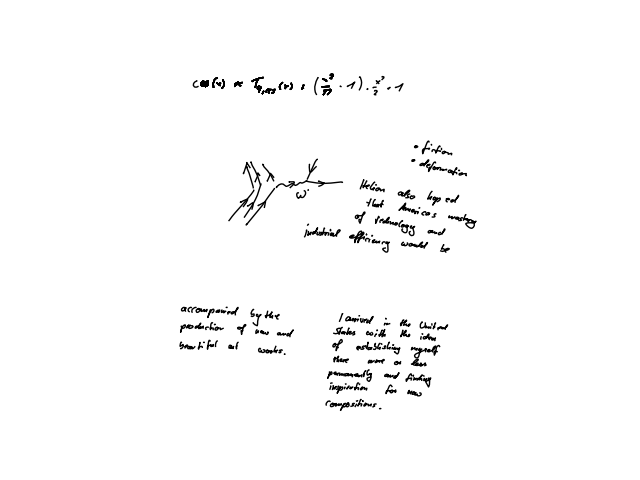 cos(x) ≈ T (x) = (x² / · 1) · x²/2 · 1
• fiction
• deformation
ω
Helion also hoped
that America's mastery
of technology and
industrial efficiency would be
accompanied by the
production of new and
beautiful art works.
I arrived in the United
States with the idea
of establishing myself
there more or less
permanently and finding
inspiration for new
compositions.